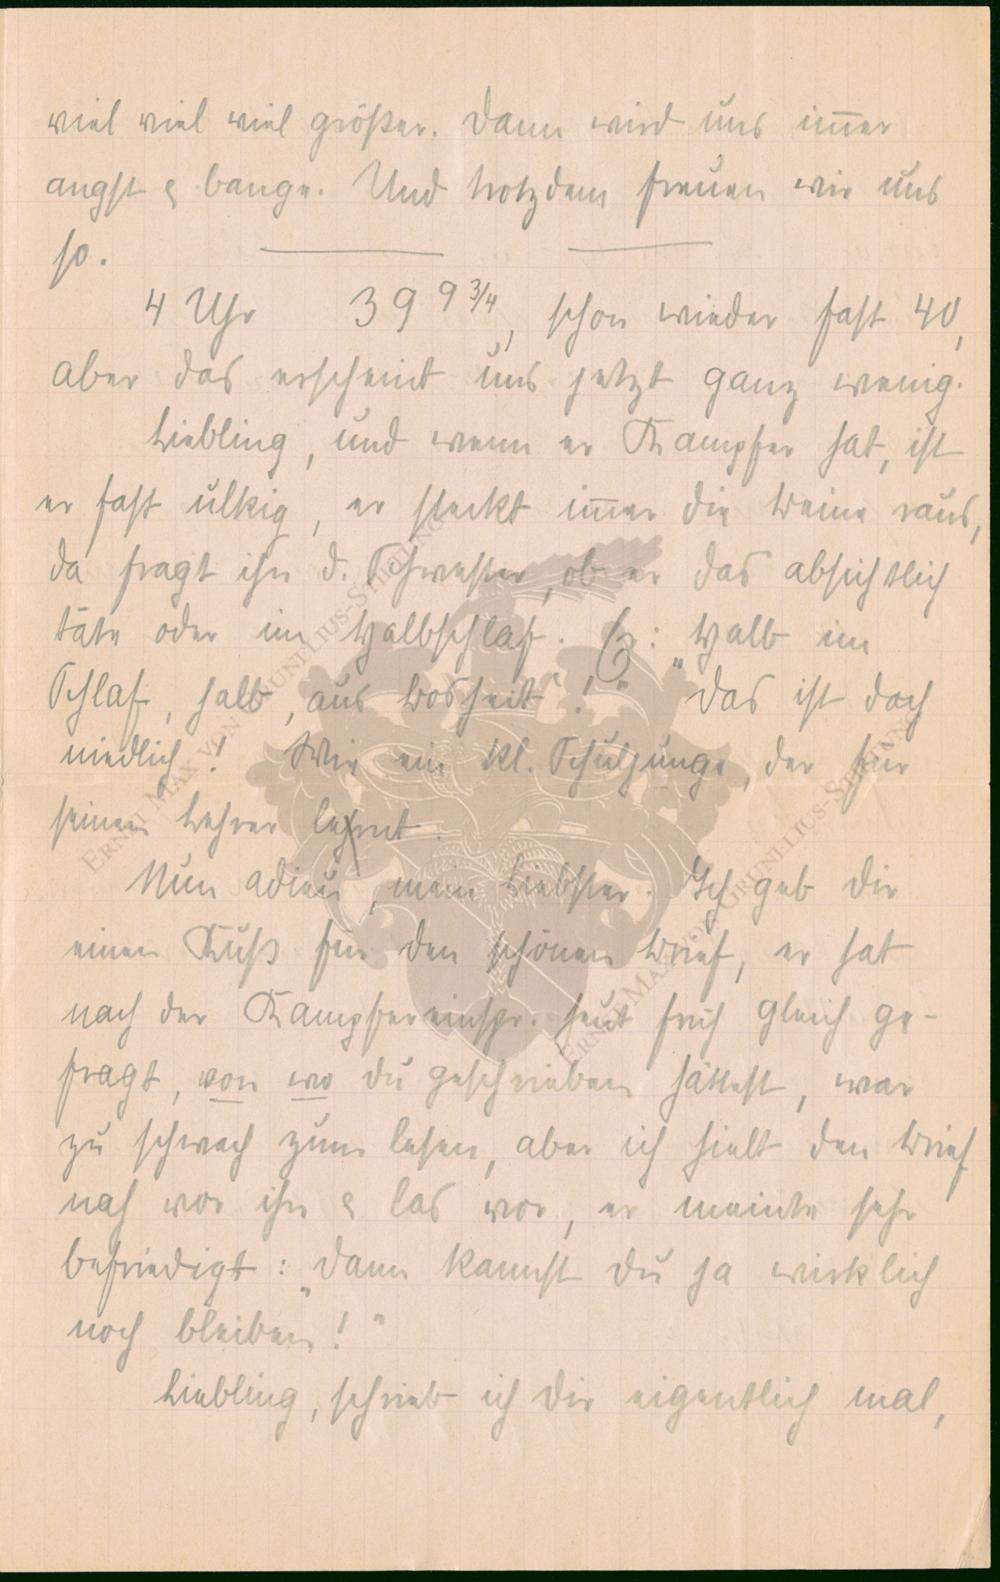 viel viel viel größer. Dann wird uns im̄er
angst & bange. Und trotzdem freuen wir uns
so.
4 Uhr 39 9 3/4, schon wieder fast 40,
aber das erscheint uns jetzt ganz wenig.
Liebling, und wenn er Kampfer hat, ist
er fast ulkig, er steckt im̄er die Beine raus,
da fragt ihn d. Schwester, ob er das absichtlich
täte oder im Halbschlaf. E: „Halb im
Schlaf, halb aus Bosheit!" Das ist doch
niedlich! Wie ein kl. Schuljunge, der für
seinen Lehrer lernt.
Nun adieu, mein Liebster. Ich geb dir
einen Kuß für den schönen Brief, er hat
nach der Kampfereinspr. heut früh gleich ge-
fragt, von wo du geschrieben hättest, war
zu schwach zum lesen, aber ich hielt den Brief
nah vor ihn & las vor, er meinte sehr
befriedigt: „Dann kannst du ja wirklich
noch bleiben!"
Liebling, schrieb ich dir eigentlich mal,
ERNST MAX VON GRUNELIUS-STIFTUNG
ERNST MAX VON GRUNELIUS-STIFTUNG